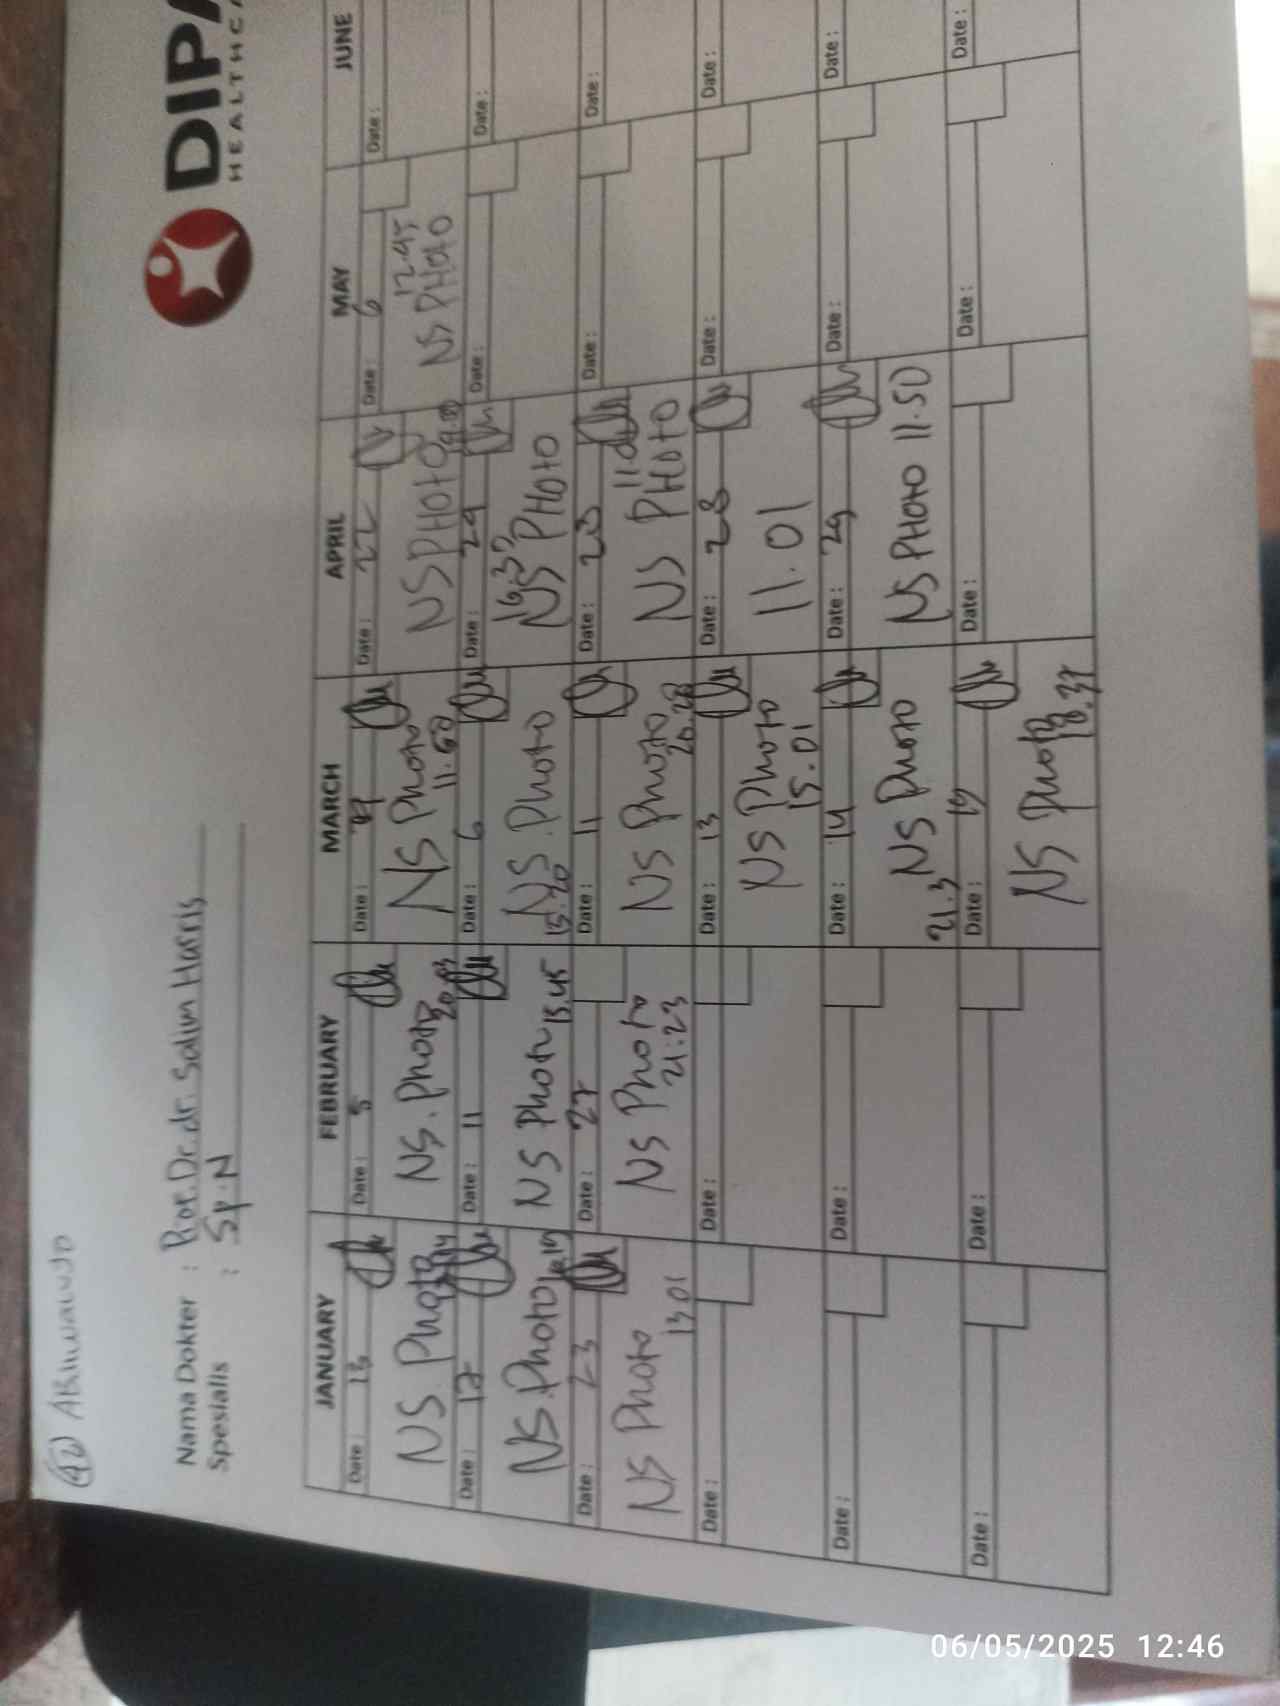 42 ABIMANYU
DIPA
HEALTHCA
Nama Dokter : Prof. Dr. dr. Salim Harris
Spesialis : Sp.N
JANUARY FEBRUARY MARCH APRIL MAY JUNE
Date : 13 Date : 5 Date : Date : 22 Date : 6 Date :
NS Photo NS. Photo 20.03 NS Photo 11.50 NS PHOTO 12.45 NS PHOTO
Date : 17 Date : 11 Date : 6 Date : 24 Date : Date :
NS. Photo NS Photo 15.45 NS. Photo 15.20 16.37 NS PHOTO
Date : 23 Date : 27 Date : 11 Date : 28 Date : Date :
NS Photo 13.01 NS Photo 21:23 NS Photo 20.28 NS PHOTO
Date : Date : Date : 13 Date : 28 Date : Date :
NS Photo 15.01 11.01
Date : Date : Date : 14 Date : 29 Date : Date :
21.3 NS Photo NS PHOTO 11.50
Date : Date : Date : 19 Date : Date : Date :
NS Photo 18.37
06/05/2025 12:46